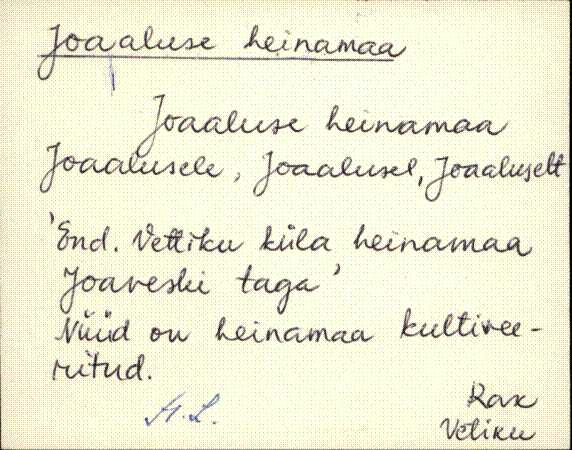 Joaaluse heinamaa
Joaaluse heinamaa
Joaalusele, Joaalusel, Joaaluselt
'End. Vettiku küla heinamaa
Joaveski taga'
Nüüd on heinamaa kultivee-
ritud.
H.L.
Rax
Vetiku